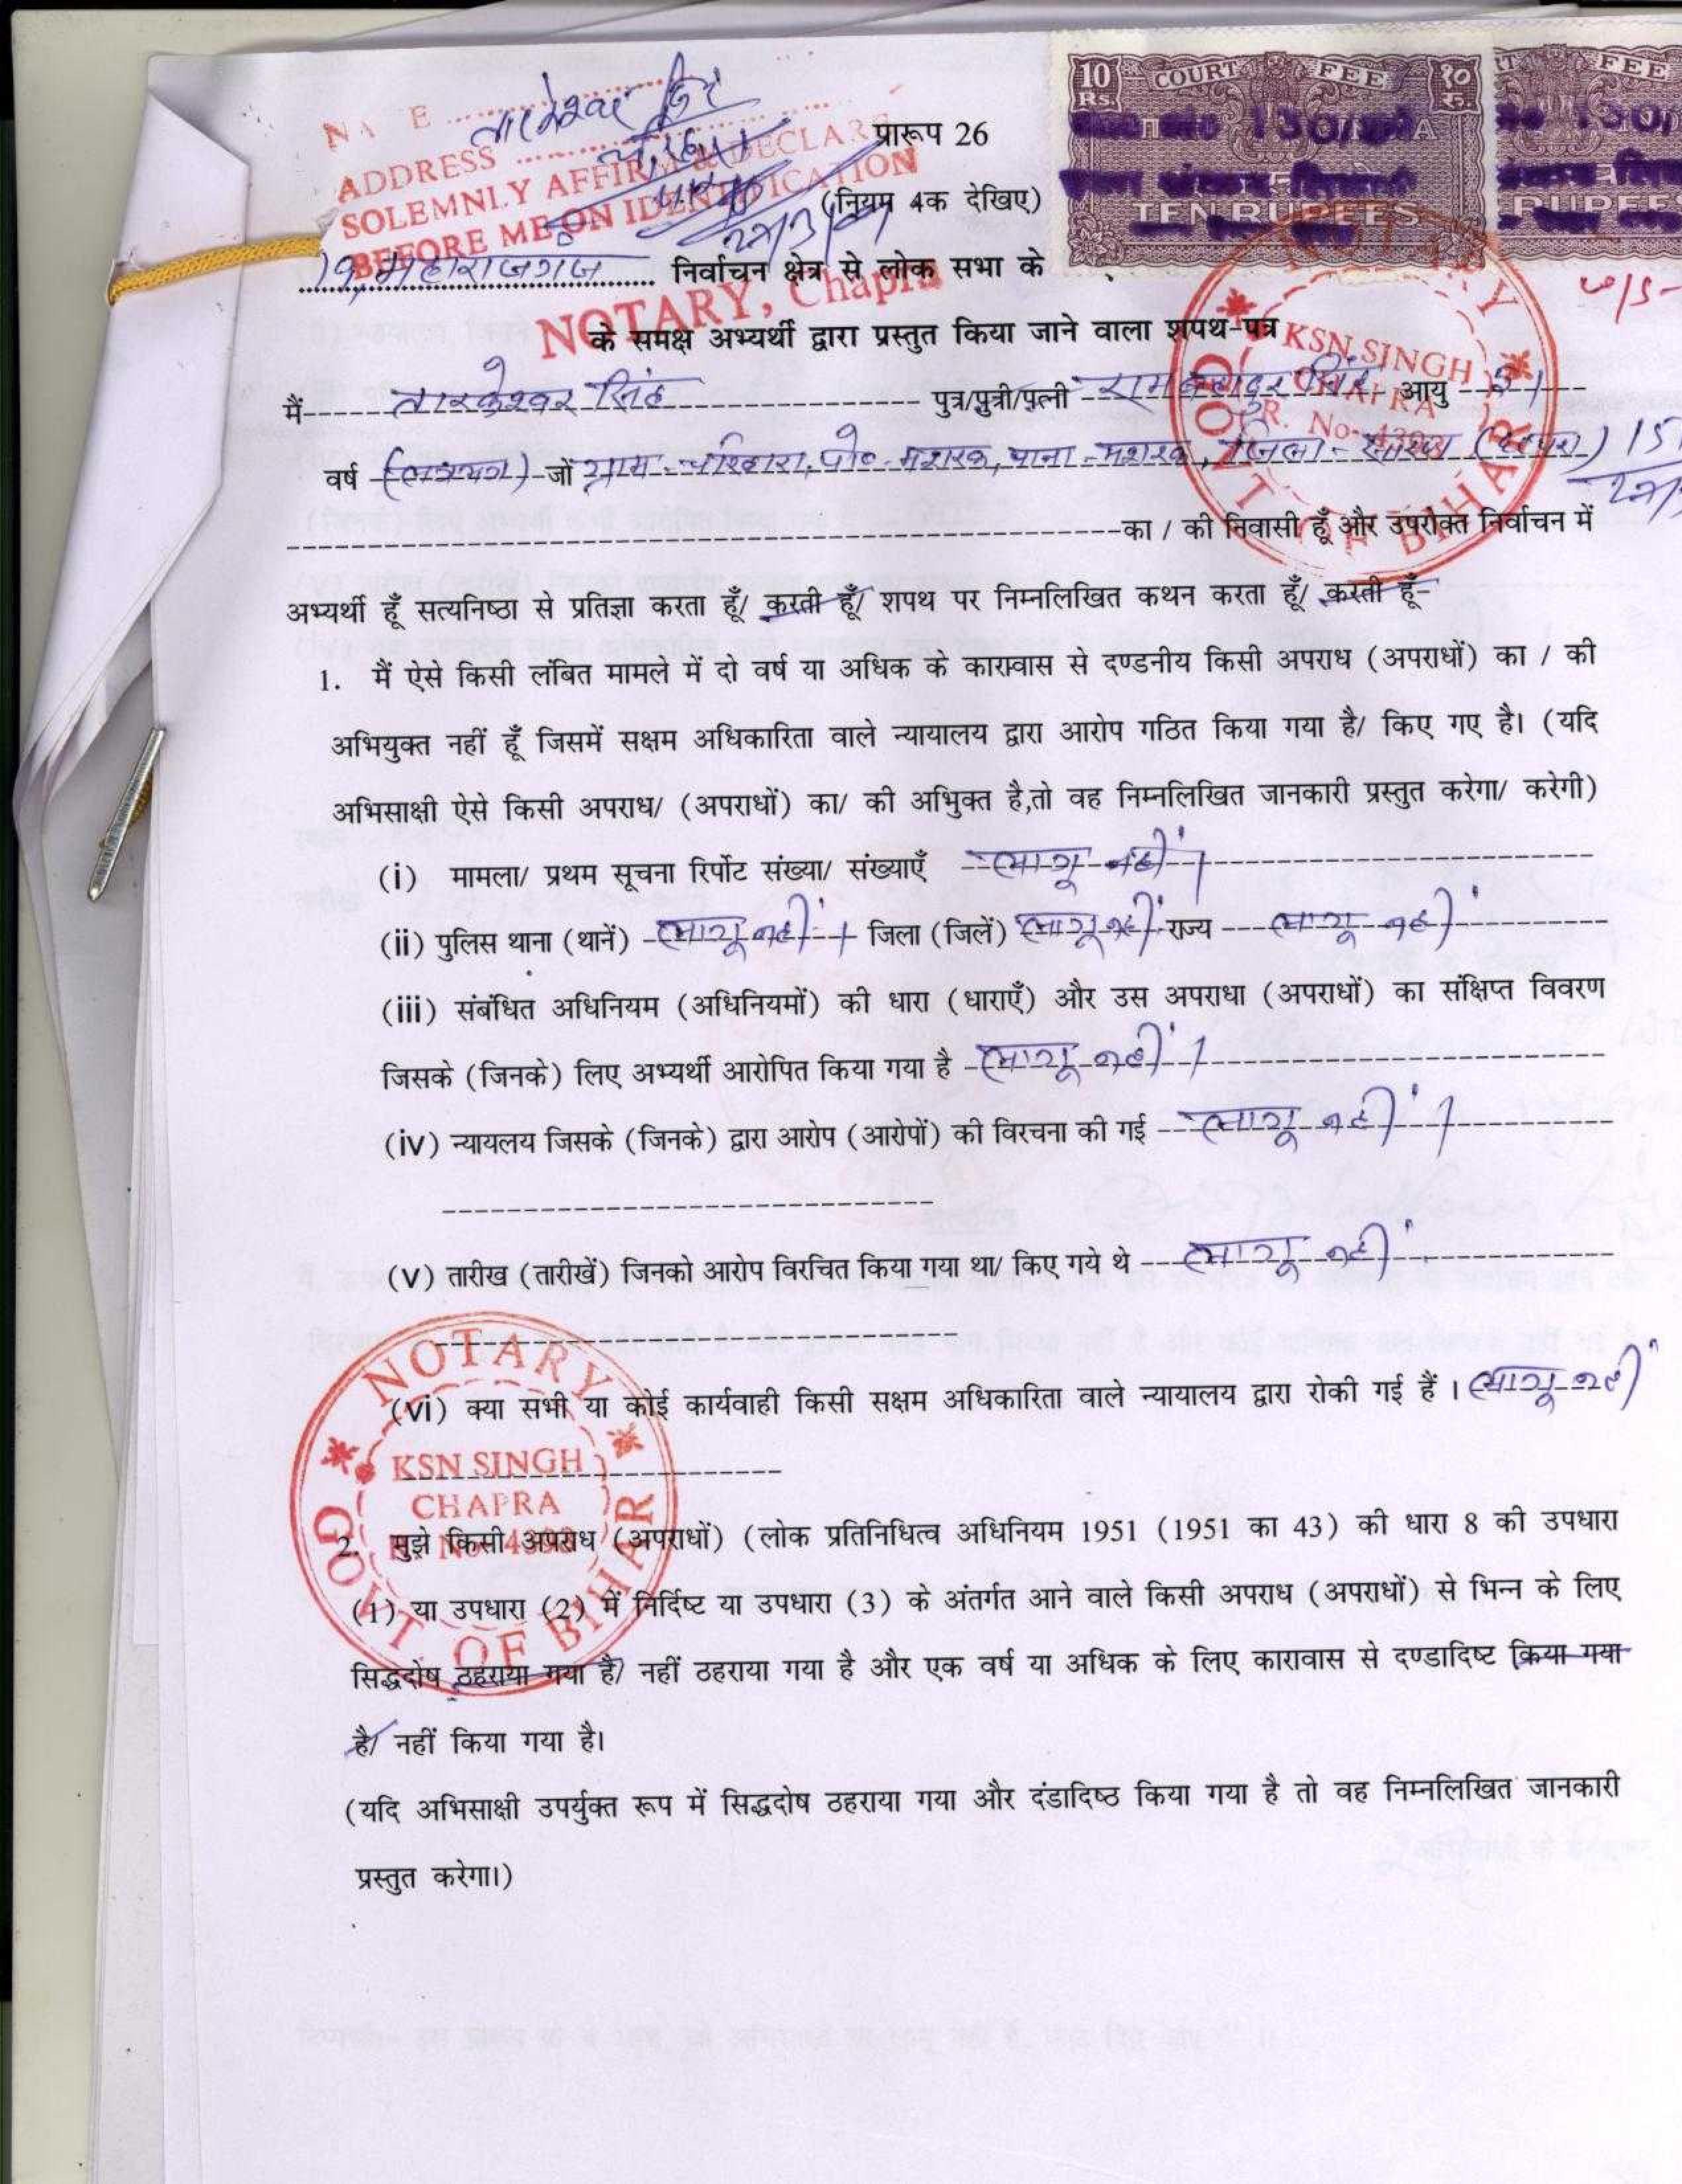 10 Rs. COURT FEE १० रु. FEE
TEN RUPEES RUPEES
ADDRESS
SOLEMNLY AFFIRM DECLARE
BEFORE ME ON IDENTIFICATION
NOTARY, Chapra
प्रारूप 26
(नियम 4क देखिए)
19, महाराजगंज निर्वाचन क्षेत्र से लोक सभा के
के समक्ष अभ्यर्थी द्वारा प्रस्तुत किया जाने वाला शपथ-पत्र
मैं तारकेश्वर सिंह पुत्र/पुत्री/पत्नी राम बहादुर सिंह आयु 51
वर्ष जों ग्राम-चरिहारा, पो०-मशरक, थाना-मशरक, जिला-सारण (छपरा)
का / की निवासी हूँ और उपरोक्त निर्वाचन में
अभ्यर्थी हूँ सत्यनिष्ठा से प्रतिज्ञा करता हूँ/ करती हूँ/ शपथ पर निम्नलिखित कथन करता हूँ/ करती हूँ-
1. मैं ऐसे किसी लंबित मामले में दो वर्ष या अधिक के कारावास से दण्डनीय किसी अपराध (अपराधों) का / की
अभियुक्त नहीं हूँ जिसमें सक्षम अधिकारिता वाले न्यायालय द्वारा आरोप गठित किया गया है/ किए गए है। (यदि
अभिसाक्षी ऐसे किसी अपराध/ (अपराधों) का/ की अभिुक्त है,तो वह निम्नलिखित जानकारी प्रस्तुत करेगा/ करेगी)
(i) मामला/ प्रथम सूचना रिर्पोट संख्या/ संख्याएँ लागू नहीं।
(ii) पुलिस थाना (थानें) लागू नहीं। जिला (जिलें) लागू नहीं राज्य लागू नहीं
(iii) संबंधित अधिनियम (अधिनियमों) की धारा (धाराएँ) और उस अपराधा (अपराधों) का संक्षिप्त विवरण
जिसके (जिनके) लिए अभ्यर्थी आरोपित किया गया है लागू नहीं।
(iv) न्यायलय जिसके (जिनके) द्वारा आरोप (आरोपों) की विरचना की गई लागू नहीं।
(v) तारीख (तारीखें) जिनको आरोप विरचित किया गया था/ किए गये थे लागू नहीं
(vi) क्या सभी या कोई कार्यवाही किसी सक्षम अधिकारिता वाले न्यायालय द्वारा रोकी गई हैं । लागू नहीं
NOTARY
KSN SINGH
CHAPRA
GOVT OF BIHAR
2. मुझे किसी अपराध (अपराधों) (लोक प्रतिनिधित्व अधिनियम 1951 (1951 का 43) की धारा 8 की उपधारा
(1) या उपधारा (2) में निर्दिष्ट या उपधारा (3) के अंतर्गत आने वाले किसी अपराध (अपराधों) से भिन्न के लिए
सिद्धदोष ठहराया गया है/ नहीं ठहराया गया है और एक वर्ष या अधिक के लिए कारावास से दण्डादिष्ट किया गया
है/ नहीं किया गया है।
(यदि अभिसाक्षी उपर्युक्त रूप में सिद्धदोष ठहराया गया और दंडादिष्ठ किया गया है तो वह निम्नलिखित जानकारी
प्रस्तुत करेगा।)